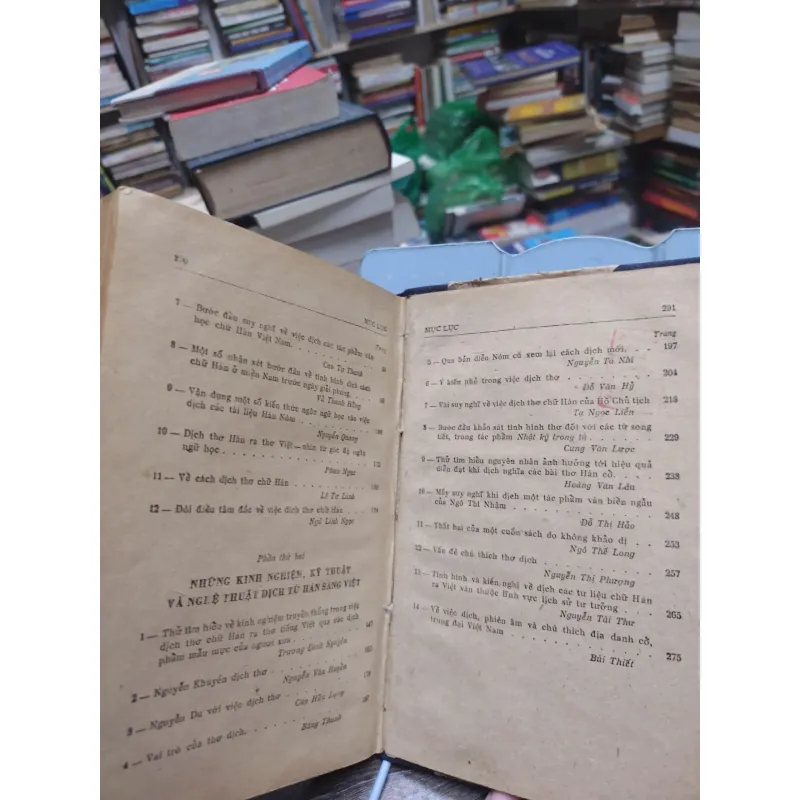 MỤC LỤC
Trang
7 — Bước đầu suy nghĩ về việc dịch các tác phẩm văn
học chữ Hán Việt Nam.
Cao Tự Thanh
8 — Một số nhận xét bước đầu về tình hình dịch sách
chữ Hán ở miền Nam trước ngày giải phóng.
Vũ Thanh Hằng
9 — Vận dụng một số kiến thức ngôn ngữ học vào việc
dịch các tài liệu Hán Nôm
Nguyễn Quang
10 — Dịch thơ Hán ra thơ Việt — nhìn từ góc độ ngôn
ngữ học
Phan Ngọc
11 — Về cách dịch thơ chữ Hán
12 — Đôi điều tâm đắc về việc dịch thơ chữ Hán
Ngô Linh Ngọc
Phần thứ hai
NHỮNG KINH NGHIỆM, KỸ THUẬT
VÀ NGHỆ THUẬT DỊCH TỪ HÁN SANG VIỆT
1 — Thử tìm hiểu về kinh nghiệm truyền thống trong việc
dịch thơ chữ Hán ra thơ tiếng Việt qua các dịch
phẩm mẫu mực của người xưa
147
2 — Nguyễn Khuyến dịch thơ
Nguyễn Văn Huyền
3 — Nguyễn Du với việc dịch thơ
4 — Vai trò của thơ dịch.
Băng Thanh
MỤC LỤC 291
Trang
5 — Qua bản diễn Nôm cũ xem lại cách dịch mới. 197
Nguyễn Tú Nhi
6 — Ý kiến nhỏ trong việc dịch thơ 204
Đỗ Văn Hỷ
7 — Vài suy nghĩ về việc dịch thơ chữ Hán của Hồ Chủ tịch 218
Tạ Ngọc Liễn
8 — Bước đầu khảo sát tình hình thơ đối với các từ song
tiết, trong tác phẩm Nhật ký trong tù 229
Cung Văn Lược
9 — Thử tìm hiểu nguyên nhân ảnh hưởng tới hiệu quả
diễn đạt khi dịch nghĩa các bài thơ Hán cổ. 238
Hoàng Văn Lâu
10 — Mấy suy nghĩ khi dịch một tác phẩm văn biền ngẫu
của Ngô Thì Nhậm 248
Đỗ Thị Hảo
11 — Thất bại của một cuốn sách do không khảo dị 253
Ngô Thế Long
12 — Vấn đề chú thích thơ dịch 257
Nguyễn Thị Phượng
13 — Tình hình và kiến nghị về dịch các tư liệu chữ Hán
ra Việt văn thuộc lĩnh vực lịch sử tư tưởng 265
Nguyễn Tài Thư
14 — Về việc dịch, phiên âm và chú thích địa danh cổ,
trung đại Việt Nam 275
Bùi Thiết